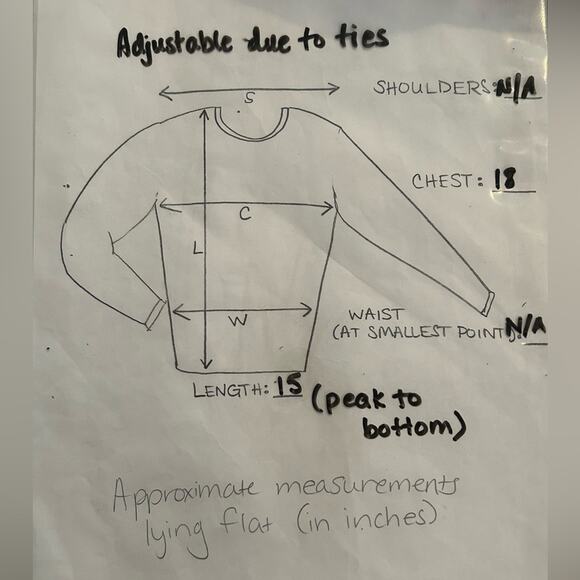 Adjustable due to ties
S
SHOULDERS: N/A
CHEST: 18
C
L
W
WAIST
(AT SMALLEST POINT) N/A
LENGTH: 15 (peak to
bottom)
Approximate measurements
lying flat (in inches)